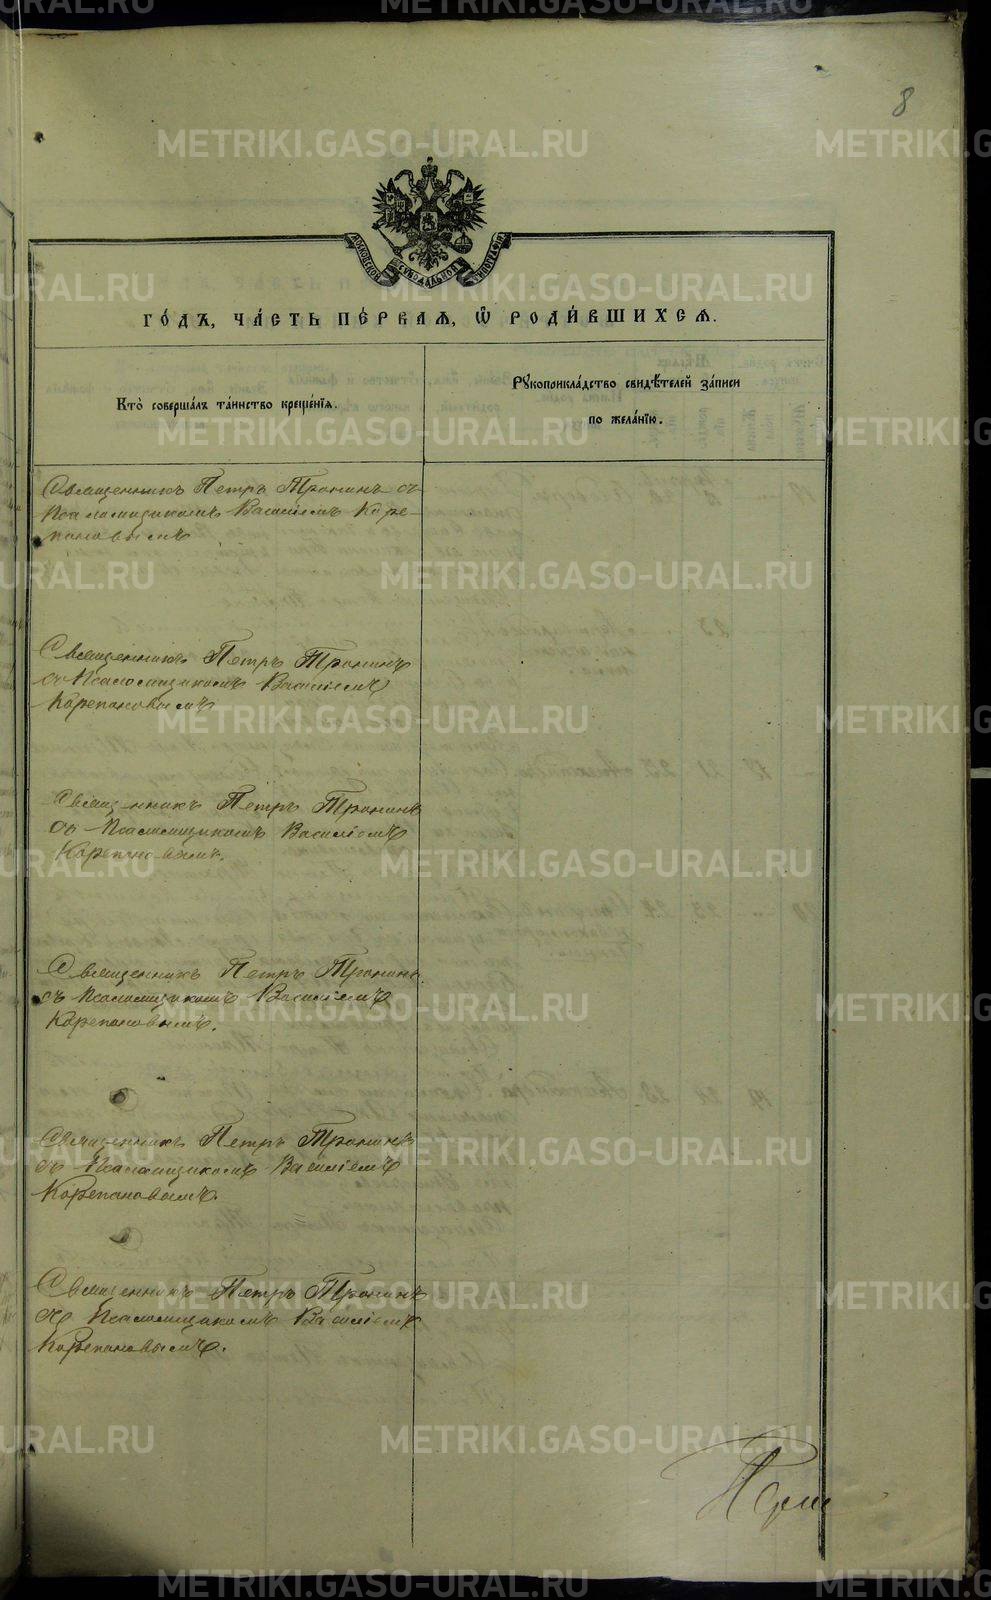 8
МОСКОВСКОЙ СѴНОДАЛЬНОЙ ТИПОГРАФІИ
ГО́ДЪ, ЧА́СТЬ ПЕ́РВАЯ, Ѽ РОДИ́ВШИХСЯ.
Кто̀ соверша́лъ та́инство креще́нїѧ.
Рꙋкоприкла́дство свидѣ́телей за́писи
по жела́нїю.
Священникъ Петръ Тронинъ съ
Псаломщикомъ Василіемъ Коре-
пановымъ
Священникъ Петръ Тронинъ
съ Псаломщикомъ Василіемъ
Корепановымъ
Священникъ Петръ Тронинъ
съ Псаломщикомъ Василіемъ
Корепановымъ.
Священникъ Петръ Тронинъ
съ Псаломщикомъ Василіемъ
Корепановымъ.
Священникъ Петръ Тронинъ
съ Псаломщикомъ Василіемъ
Корепановымъ.
Священникъ Петръ Тронинъ
съ Псаломщикомъ Василіемъ
Корепановымъ.
METRIKI.GASO-URAL.RU